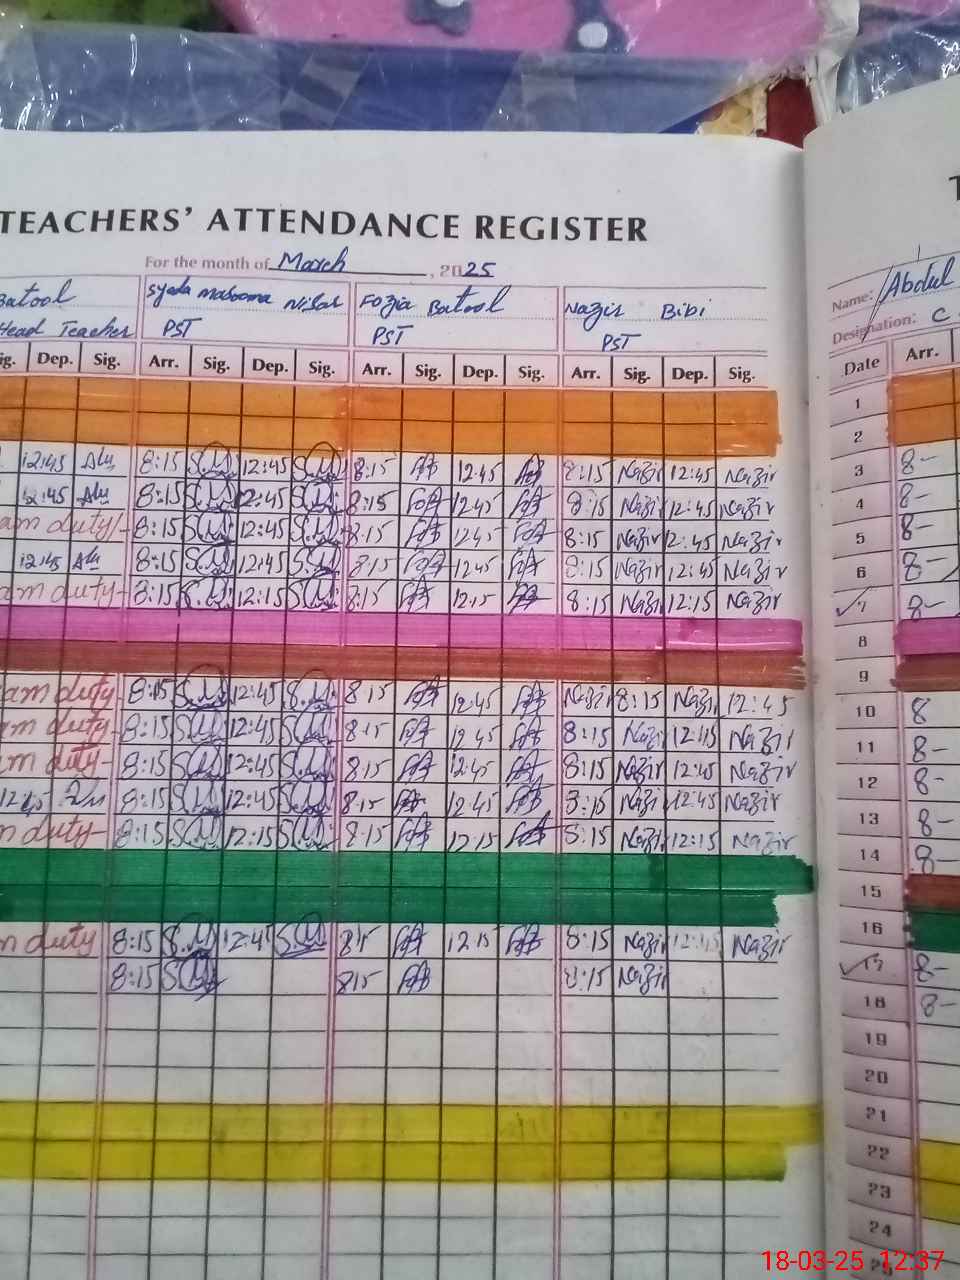 TEACHERS' ATTENDANCE REGISTER
For the month of March, 2025
Batool Syeda Masooma Nisar Fozia Batool Nazir Bibi
Head Teacher PST PST PST
Dep. Sig. Arr. Sig. Dep. Sig. Arr. Sig. Dep. Sig. Arr. Sig. Dep. Sig.
12:45 8:15 S.M 12:45 S.M 8:15 12:45 8:15 Nazir 12:45 Nazir
12:45 8:15 S.M 12:45 S.M 8:15 12:45 8:15 Nazir 12:45 Nazir
am duty 8:15 S.M 12:45 S.M 8:15 12:45 8:15 Nazir 12:45 Nazir
12:45 8:15 S.M 12:45 S.M 8:15 12:45 8:15 Nazir 12:45 Nazir
am duty 8:15 S.M 12:15 S.M 8:15 12:15 8:15 Nazir 12:15 Nazir
am duty 8:15 S.M 12:45 S.M 8:15 12:45 Nazir 8:15 Nazir 12:45
am duty 8:15 S.M 12:45 S.M 8:15 12:45 8:15 Nazir Nazir
am duty 8:15 S.M 12:45 S.M 8:15 12:45 8:15 Nazir 12:45 Nazir
8:15 S.M 12:45 S.M 8:15 12:45 8:15 Nazir 12:45 Nazir
m duty 8:15 S.M 12:15 S.M 8:15 12:15 8:15 Nazir 12:15 Nazir
m duty 8:15 S.M 12:45 S.M 8:15 12:15 8:15 Nazir Nazir
8:15 S.M 8:15 8:15 Nazir
T
Name: Abdul
Designation: C
Date Arr.
1
2
3 8-
4 8-
5 8-
6 8-
7 8-
8
9
10 8
11 8-
12 8-
13 8-
14 8-
15
16
17 8-
18 8-
19
20
21
22
23
24
25
18-03-25 12:37